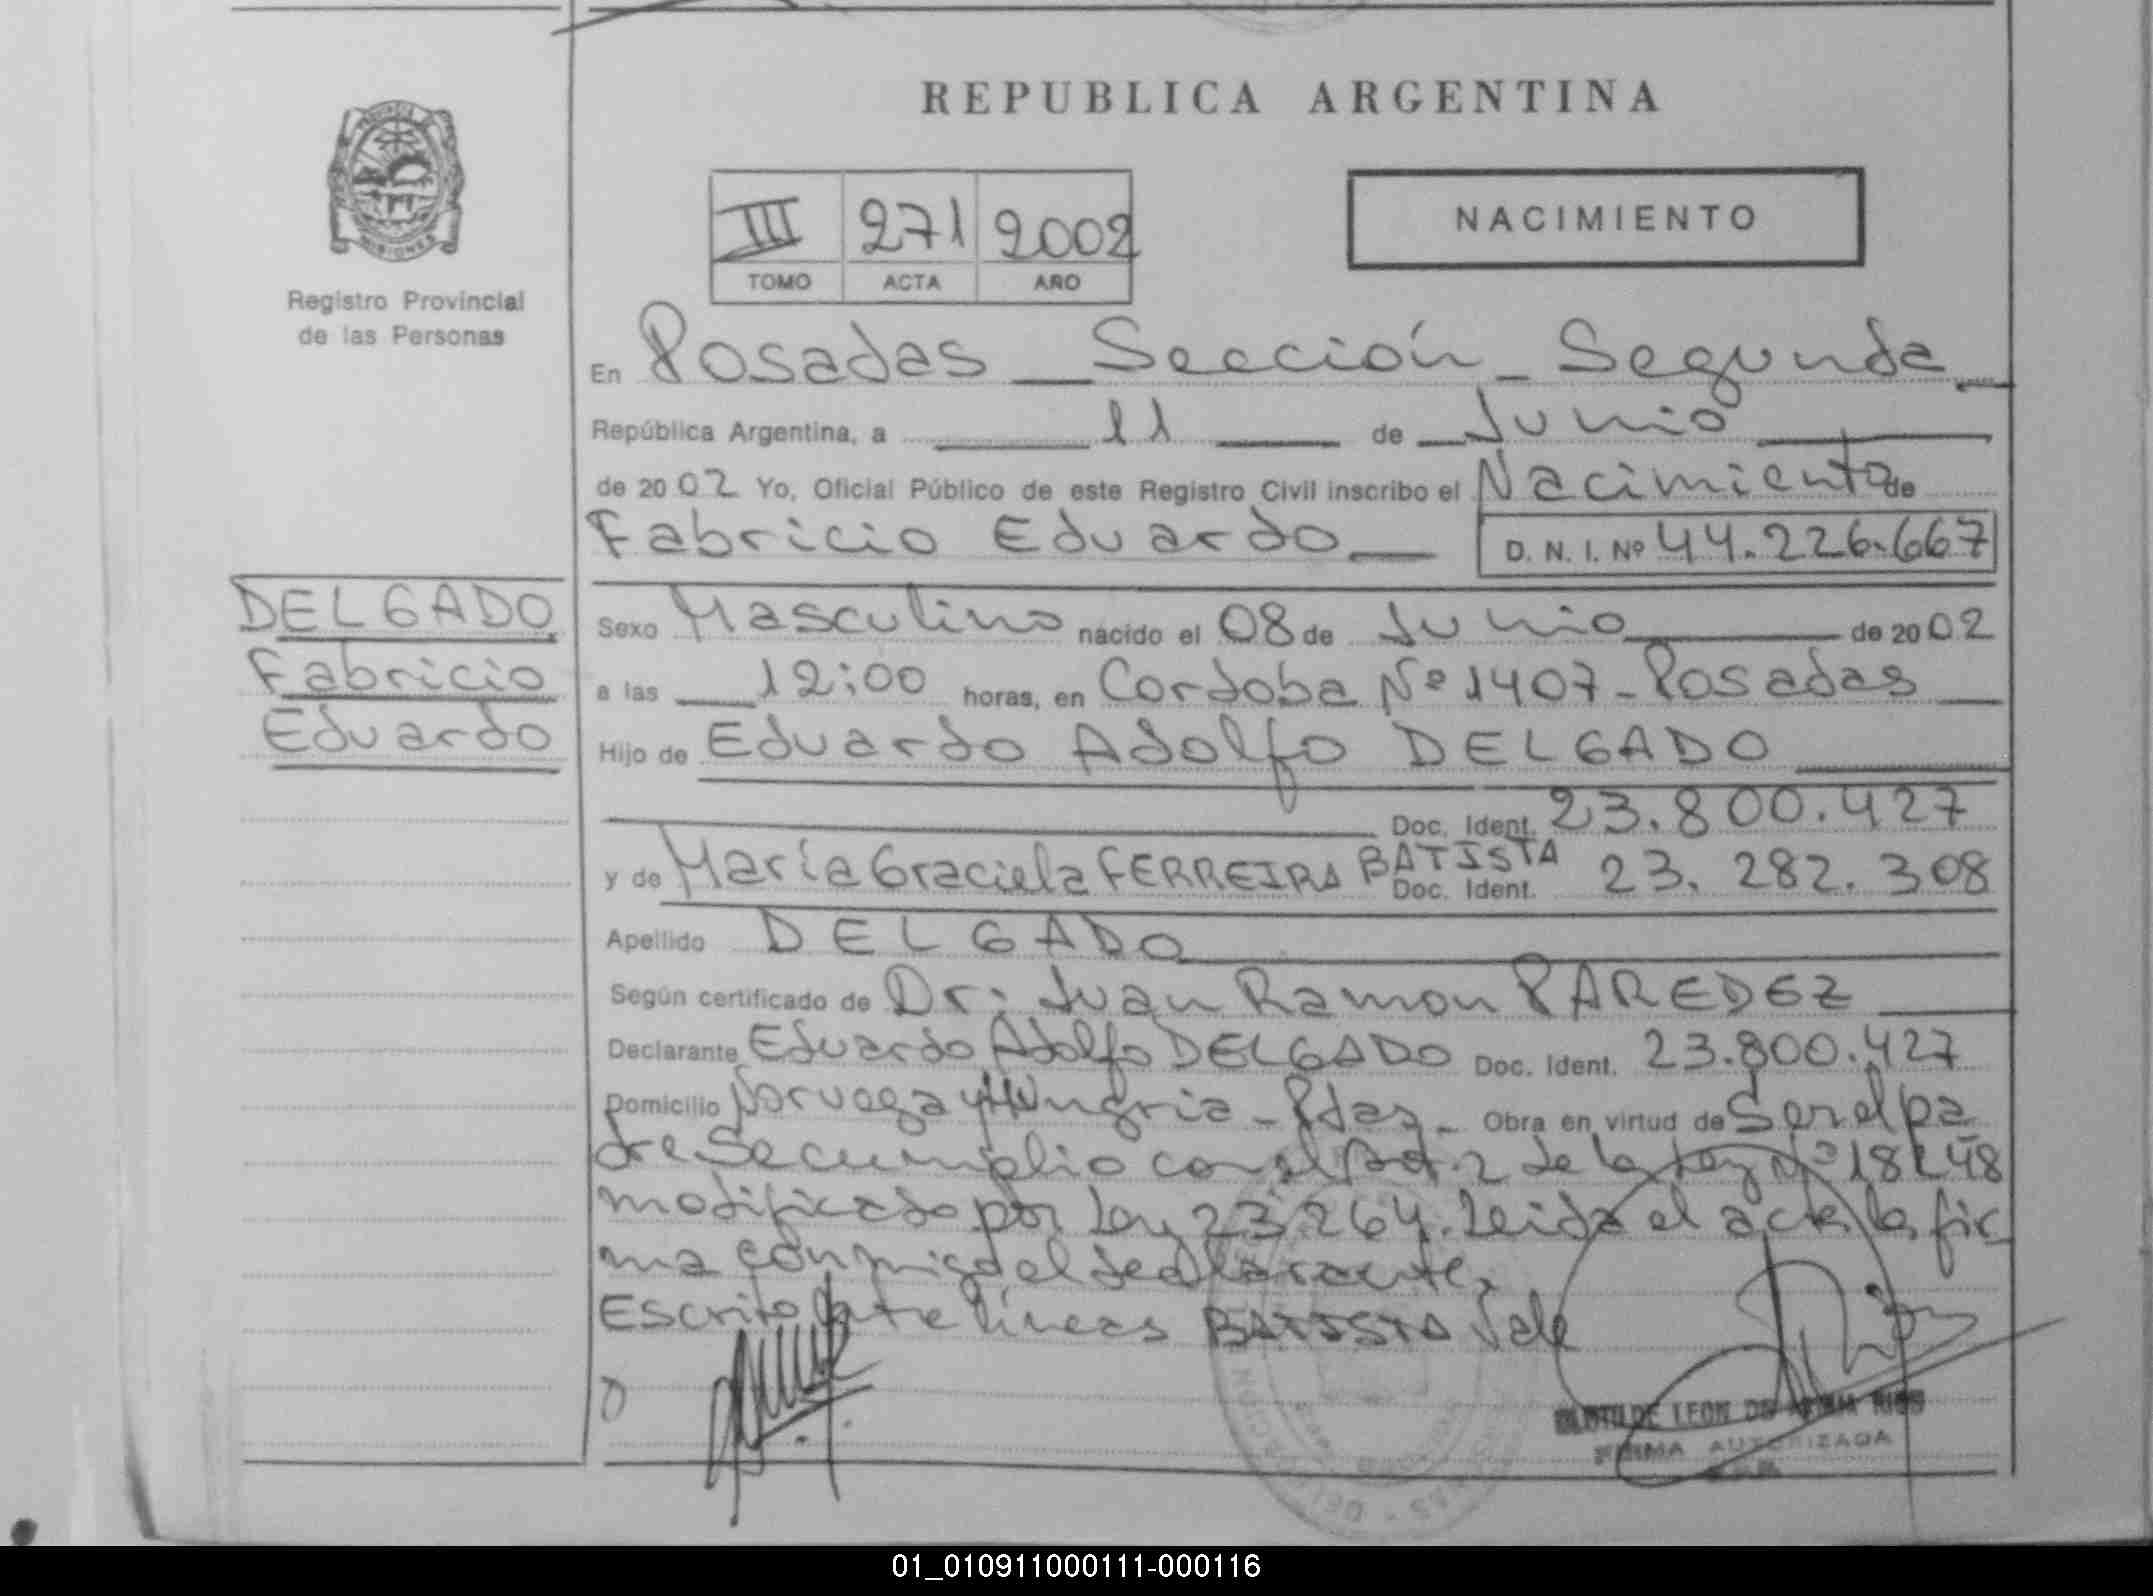 REPUBLICA ARGENTINA
PROVINCIA
MISIONES
Registro Provincial
de las Personas
III 271 2002
TOMO ACTA AÑO
NACIMIENTO
En Posadas Sección Segunda
República Argentina, a 11 de Junio
de 2002 Yo, Oficial Público de este Registro Civil inscribo el Nacimiento de
Fabricio Eduardo D. N. I. Nº 44.226.667
DELGADO
Fabricio
Eduardo
Sexo Masculino nacido el 08 de Junio de 2002
a las 12:00 horas, en Cordoba Nº 1407 - Posadas
Hijo de Eduardo Adolfo DELGADO
Doc. Ident. 23.800.427
y de María Graciela FERREIRA BATISTA Doc. Ident. 23.282.308
Apellido DELGADO
Según certificado de Dr: Juan Ramon PAREDEZ
Declarante Eduardo Adolfo DELGADO Doc. Ident. 23.800.427
Domicilio Noruega y Hungria - Pdas - Obra en virtud de Ser el pa
dre Se cumplio con el Art. 2 de la Ley Nº 18248
modificado por Ley 23264. Leida el acta la fir
ma conmigo el declarante.
Escrito entre líneas BATISTA Vale
CLOTILDE LEON DE RIOS
FIRMA AUTORIZADA
01_010911000111-000116